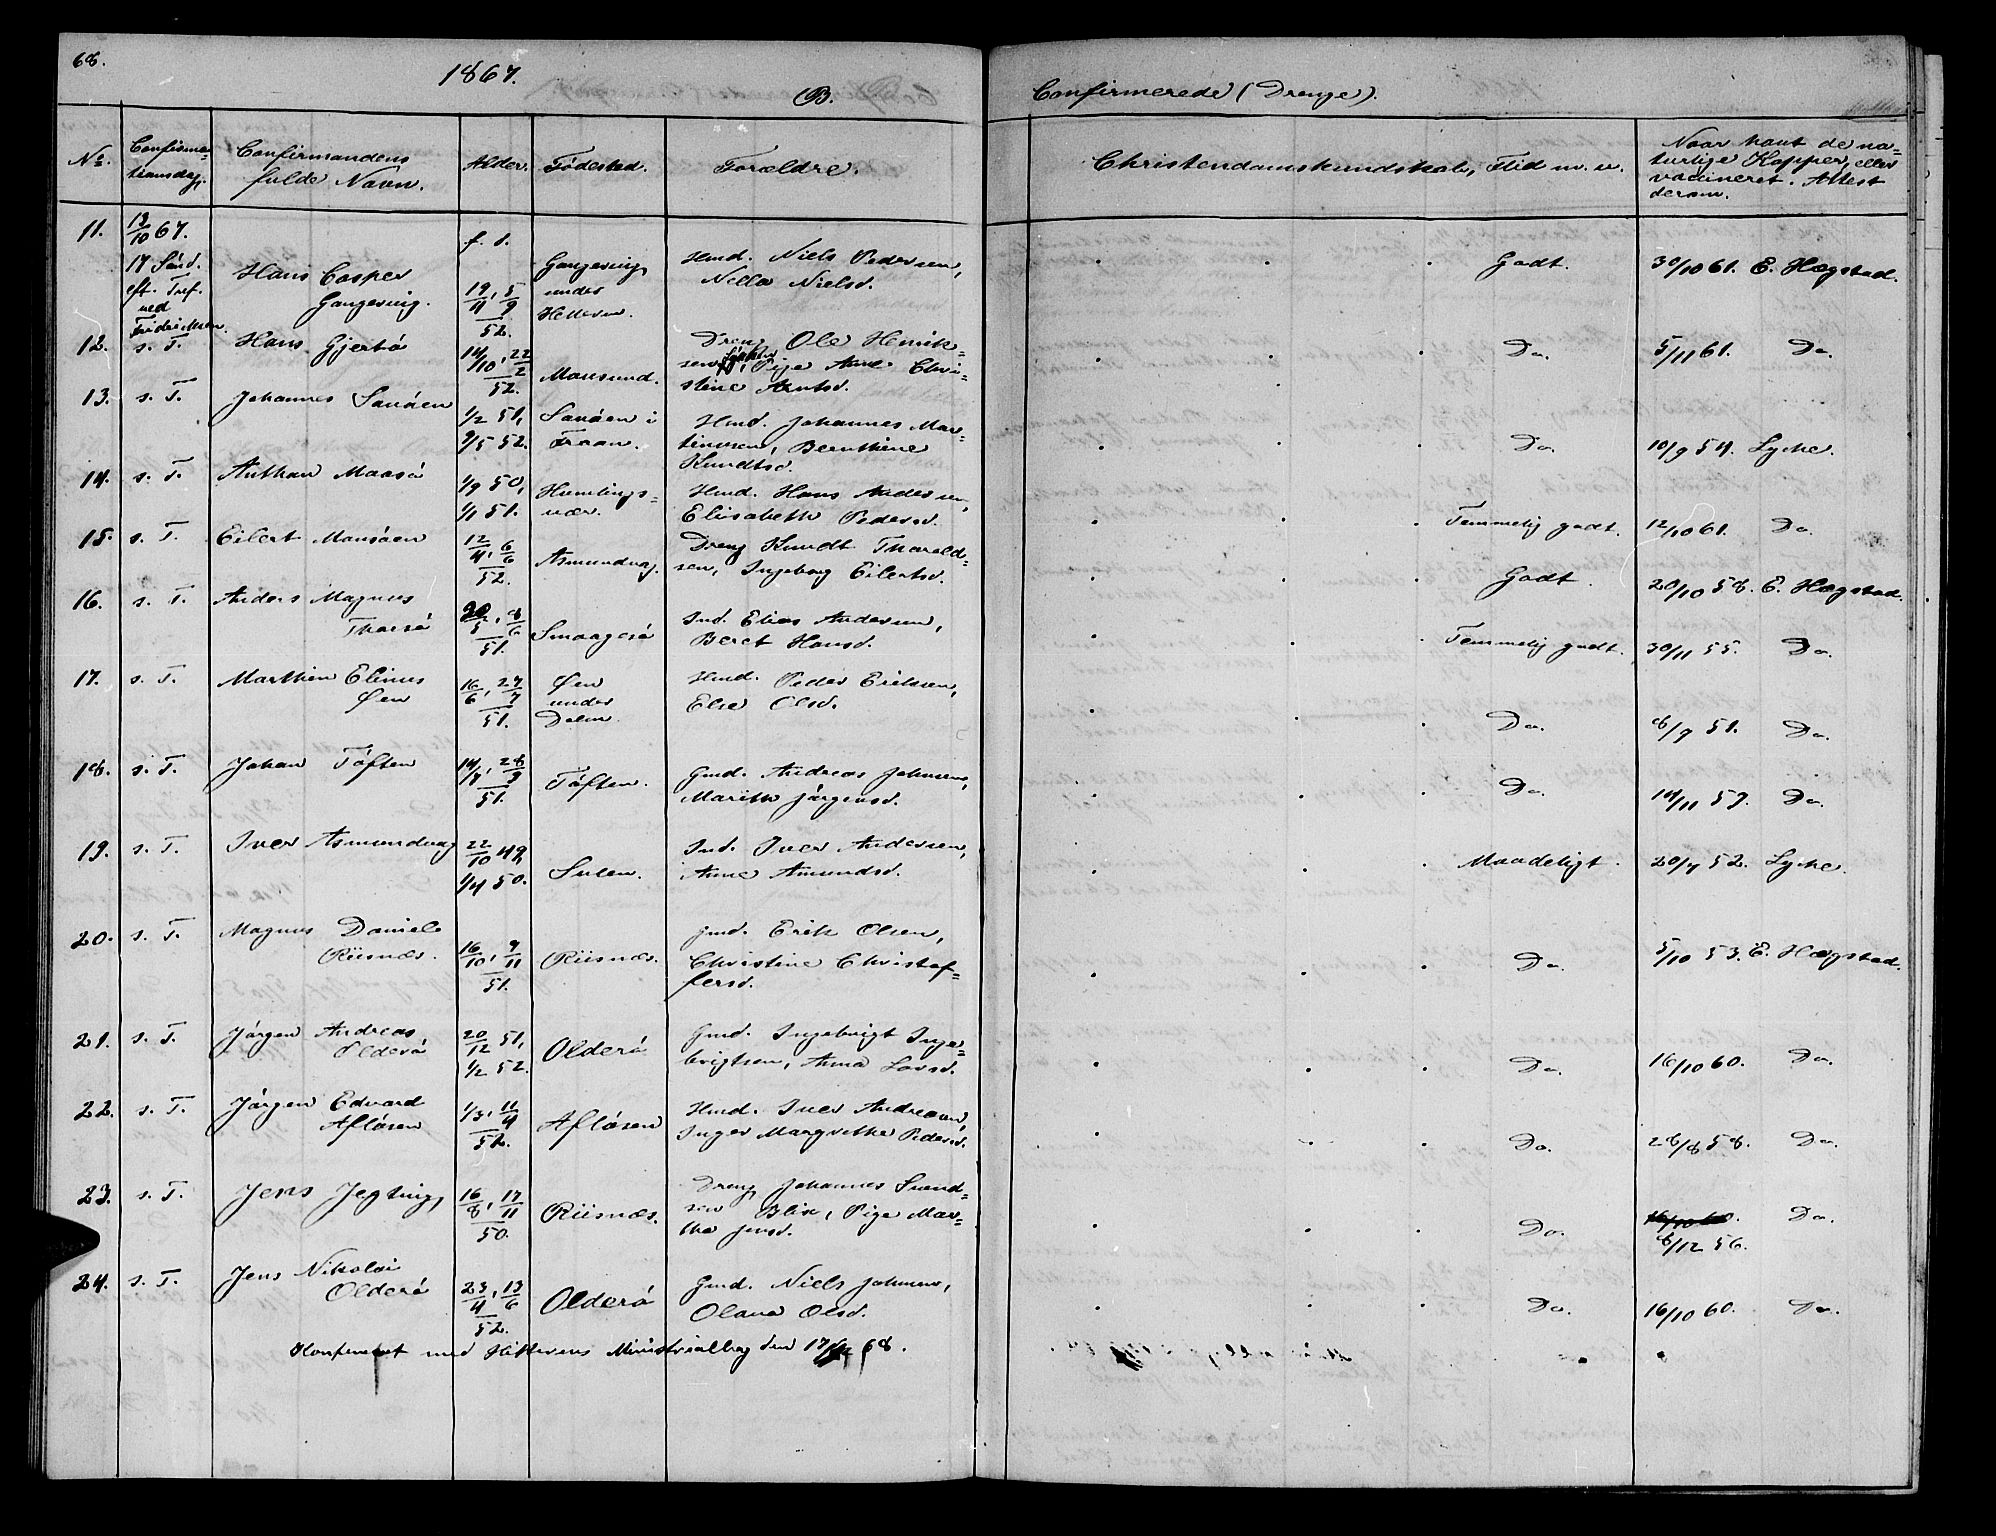 68.
1867.
B.
Confirmerede (Drenge).
No. Confirma= tionsdag. Confirmandens fulde Navn. Alder. Fødested. Forældre. Christendomskundskab, Flid m. v. Naar havt de na= turlige Kopper, eller vaccineret. Attest derom.
11. 13/10 67. 17 Sønd. eft. Tref. ved Hans Casper f. d. 19/4, 5/9 52. under Hitteren. Hmd. Niels Pedersen, Nilla Nielsd. Godt. 30/10 61. E. Hægstad.
12. s. T. Hans Gjertø 14/10, 22/2 52. Mausund. Dreng Ole Henrik= sen, Pige Ane Chri= stine Arntsd. Do. 5/11 61. Do.
13. s. T. Johannes Sanøen 1/2 51, 9/5 52. Sanøen i Froan. Hmd. Johannes Mar= tinusen, Bernthine Knudtsd. Do. 10/9 54. Lyche.
14. s. T. Anthon Maasø 1/9 50, 1/1 51. Humlings= vær. Hmd. Hans Andersen, Elisabeth Pedersd. Temmelig godt. 12/10 61. Do.
15. s. T. Eilert Mausøen 12/4, 6/6 52. Asmundvag. Dreng Knudt Thorald= sen, Ingeborg Eilertsd. Godt. 20/10 58. E. Hægstad.
16. s. T. Anders Magnus Thorsø 20/5, 8/6 51. Smaagesø Ind. Elias Andersen, Beret Hansd. Temmelig godt. 30/11 55. Do.
17. s. T. Marthin Elinus Øen 16/6, 27/7 51. Øen under Dolm. Hmd. Peder Eriksen, Else Olsd. Do. 8/9 51. Do.
18. s. T. Johan Tøften 14/7, 28/9 51. Tøften. Gmd. Andreas Johnsen, Marith Jørgensd. Do. 14/11 57. Do.
19. s. T. Iver Asmundvag 22/10 49, 1/4 50. Sulen. Ind. Iver Andersen, Anne Amundsd. Maadeligt. 20/7 52. Lyche.
20. s. T. Magnus Daniel Riisnæs. 16/10, 9/11 51. Riisnæs. Gmd. Erik Olsen, Christine Christof= fersd. Do. 5/10 53. E. Hægstad.
21. s. T. Jørgen Andreas Olderø 20/12 51, 1/2 52. Olderø Gmd. Ingebrigt Inge= brigtsen, Anna Larsd. Do. 16/10 60. Do.
22. s. T. Jørgen Edvard Afløsen 1/3, 11/4 52. Afløsen Hmd. Iver Andreasen, Inger Margrethe Pedersd. Do. 28/8 58. Do.
23. s. T. Jens Jegtvig 16/8, 17/11 50. Riisnæs. Dreng Johannes Svend= sen Blix, Pige Mar= tha Jensd. Do. 8/12 56. Do.
24. s. T. Jens Nikolai Olderø 23/4, 13/6 52. Olderø Gmd. Niels Johnsen, Olava Olsd. Do. 16/10 60. Do.
Konfereret med Hitterens Ministrialbog den 68.